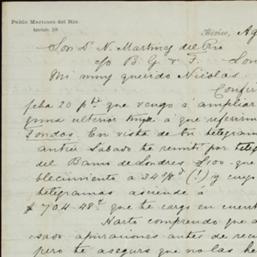 Pablo Martinez del Rio.
México, Ag
Son Dn N. Martinez del Rio
c/o B. G. & F. Lon
Mi muy querido Nicolas
Confir
pha 20 pto que vengo á ampliar
á que referirm
Fondos. En vista de tu telegram
antier Sabado te remití por tele
del Banco de Londres £100. que
blecimiento a 34 7/8 (!) y cuyo
telegramas asciende á
$ 704-48 que te cargo en cuent
Harto comprendo que a
esado apuraciones antes de reci
pero te aseguro que no las he